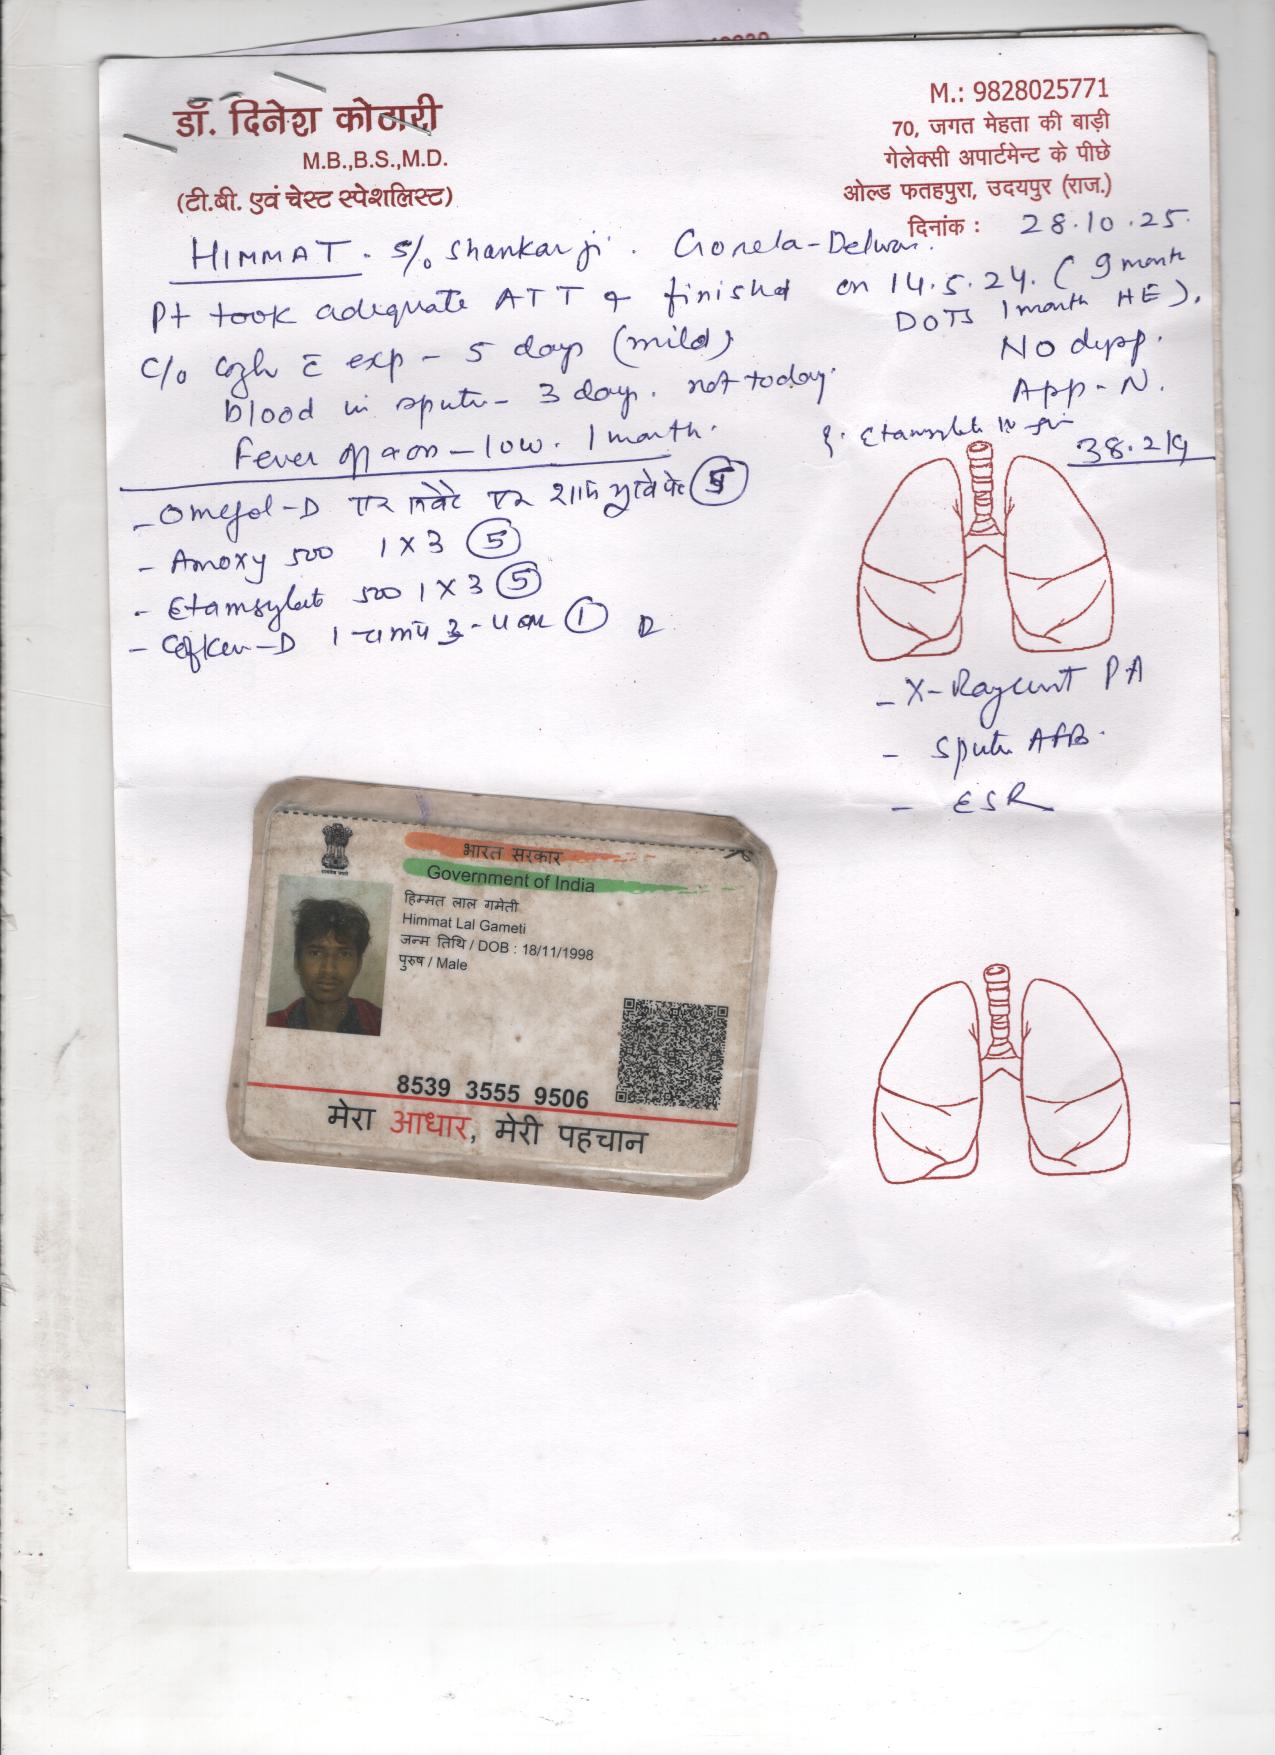 डॉ. दिनेश कोठारी
M.B.,B.S.,M.D.
(टी.बी. एवं चेस्ट स्पेशलिस्ट)
M.: 9828025771
70, जगत मेहता की बाड़ी
गेलेक्सी अपार्टमेन्ट के पीछे
ओल्ड फतहपुरा, उदयपुर (राज.)
दिनांक : 28.10.25.
HIMMAT. S/o Shankar ji.
Pt took adequate ATT & finished on 14.5.24. (9 month
DOTS 1 month HE).
C/o cogh c̄ exp - 5 days (mild)
No dysp.
blood in sputu - 3 day. not today.
App - N.
Fever off & on - low. 1 month.
Etamsylate
- Omefol-D
- Amoxy 500 1 X 3 (5)
- Etamsylate 500 1 X 3 (5)
- 1 चम्मच (1)
- X-Ray PA
- Sputu AFB.
- ESR
भारत सरकार
Government of India
हिम्मत लाल गमेती
Himmat Lal Gameti
जन्म तिथि / DOB : 18/11/1998
पुरुष / Male
8539 3555 9506
मेरा आधार, मेरी पहचान